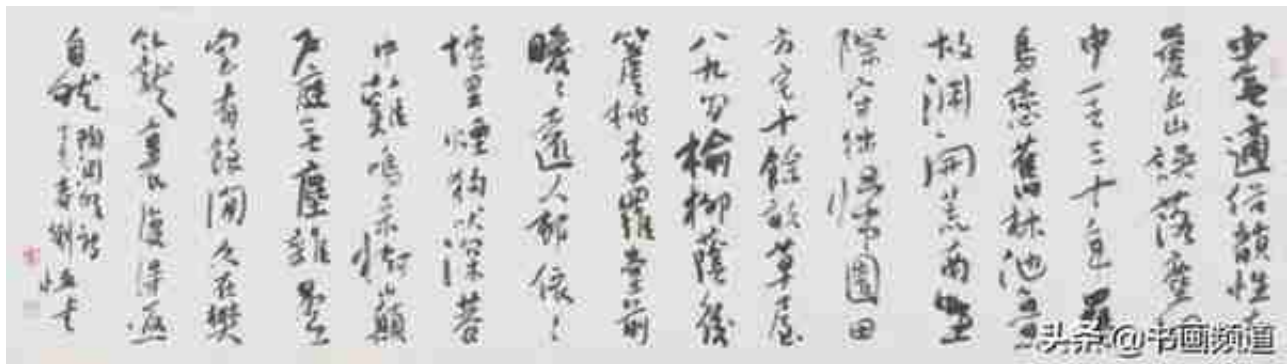 少無適俗韻性本
愛丘山誤落塵網
中一去三十年羈
鳥戀舊林池魚
故淵開荒南野
際守拙歸園田
方宅十餘畝草屋
八九间榆柳蔭後
簷桃李羅堂前
曖々遠人邨依々
墟里煙狗吠深巷
中雞鳴桑樹巔
戶庭無塵雜虛
室有餘閒久在樊
籠裏復得返
自然
陶淵明詩
春劉恒書
头条@书画频道